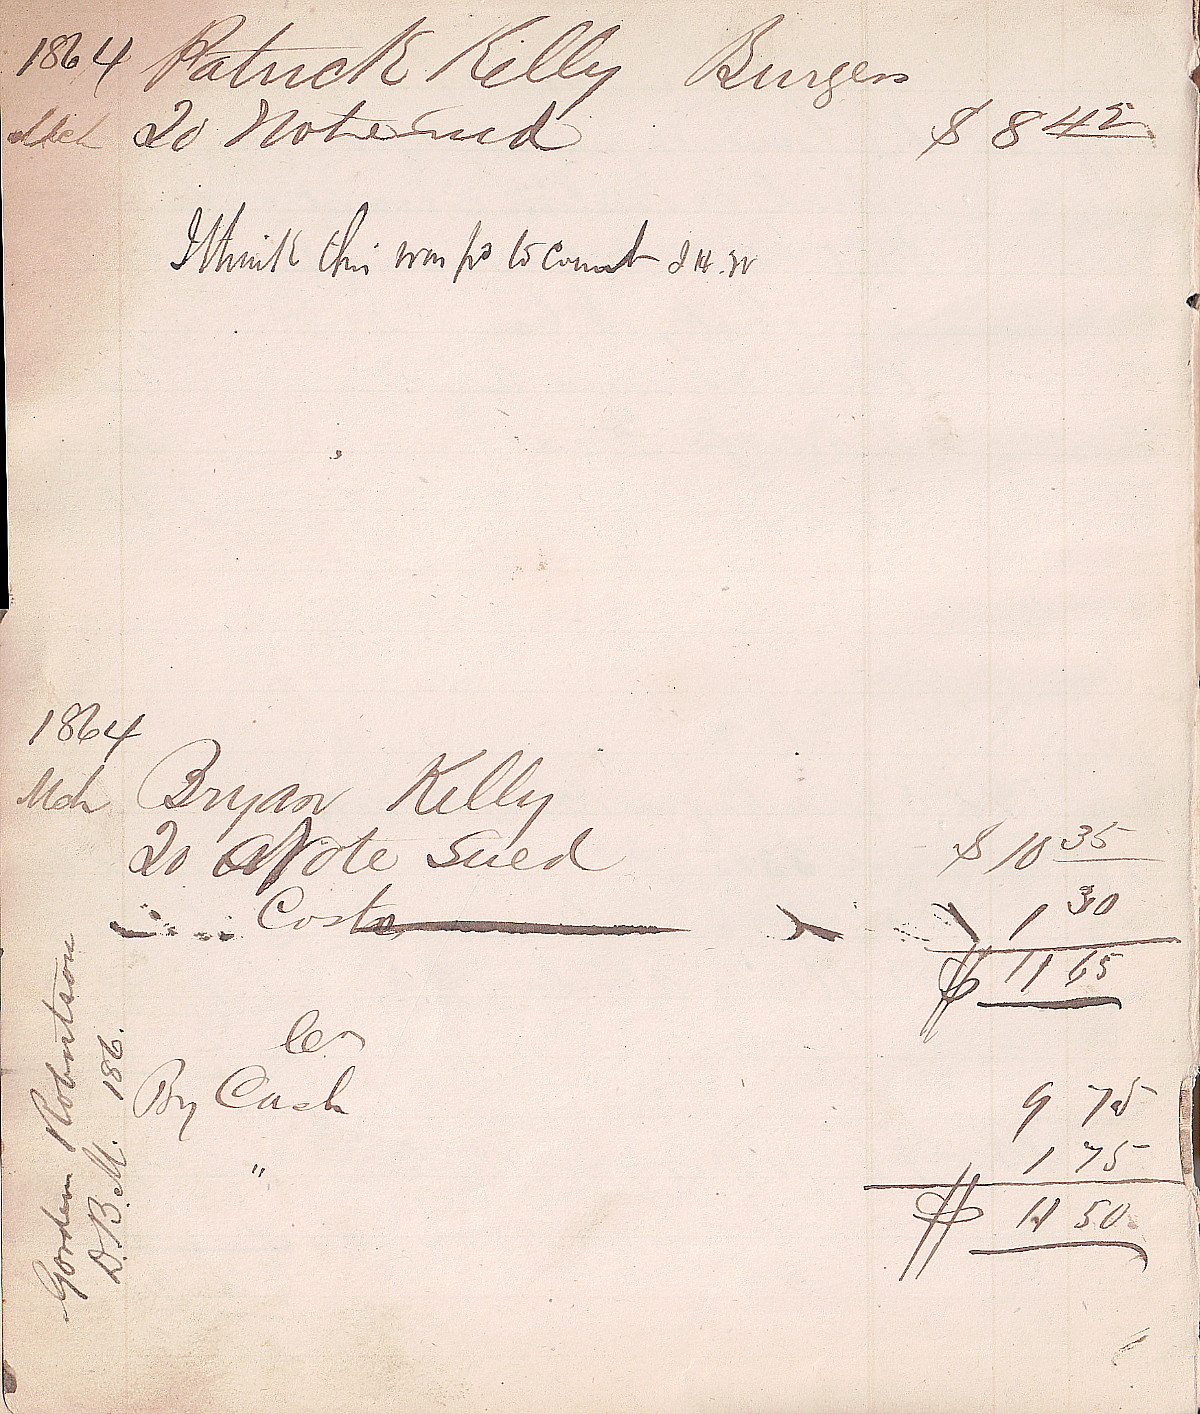 1864 Patrick Kelly Burgess
Mch To Note sued $ 8 45
I think this was pd to count J H. W
1864
Mch Bryan Kelly
To Note Sued $ 10 35
" " Costs 1 30
$ 11 65
Cr
By Cash 9 75
" 1 75
$ 11 50
Gordon Robertson
D.B.M. 186.